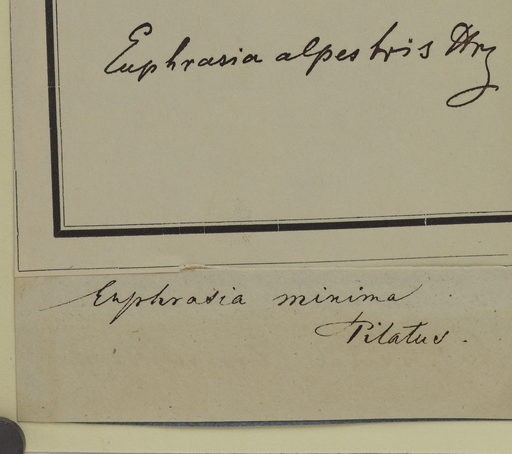 Euphrasia alpestris
Euphrasia minima
Pilatus.